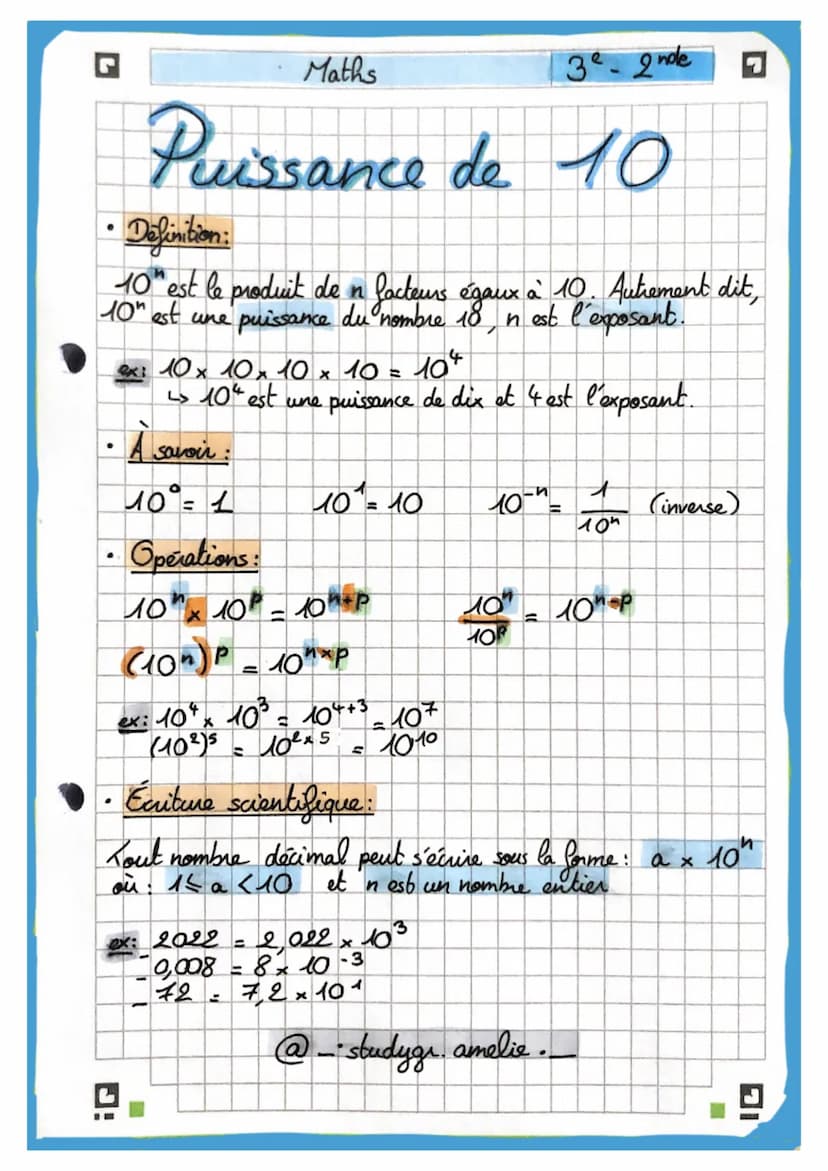 Maths 3e - 2nde
Puissance de 10
• Définition:
10ⁿ est le produit de n facteurs égaux à 10. Autrement dit,
10ⁿ est une puissance du nombre 10, n est l'exposant.
ex: 10 × 10 × 10 × 10 = 10⁴
↳ 10⁴ est une puissance de dix et 4 est l'exposant.
• À savoir:
10⁰ = 1 10¹ = 10 10⁻ⁿ = 1/10ⁿ (inverse)
• Opérations:
10ⁿ × 10ᵖ = 10ⁿ⁺ᵖ 10ⁿ/10ᵖ = 10ⁿ⁻ᵖ
(10ⁿ)ᵖ = 10ⁿˣᵖ
ex: 10⁴ × 10³ = 10⁴⁺³ = 10⁷
(10²)⁵ = 10²ˣ⁵ = 10¹⁰
• Écriture scientifique:
Tout nombre décimal peut s'écrire sous la forme: a × 10ⁿ
où: 1 ⩽ a < 10 et n est un nombre entier
ex: 2022 = 2,022 × 10³
- 0,008 = 8 × 10⁻³
- 72 = 7,2 × 10¹
@_·studygr.amelie._